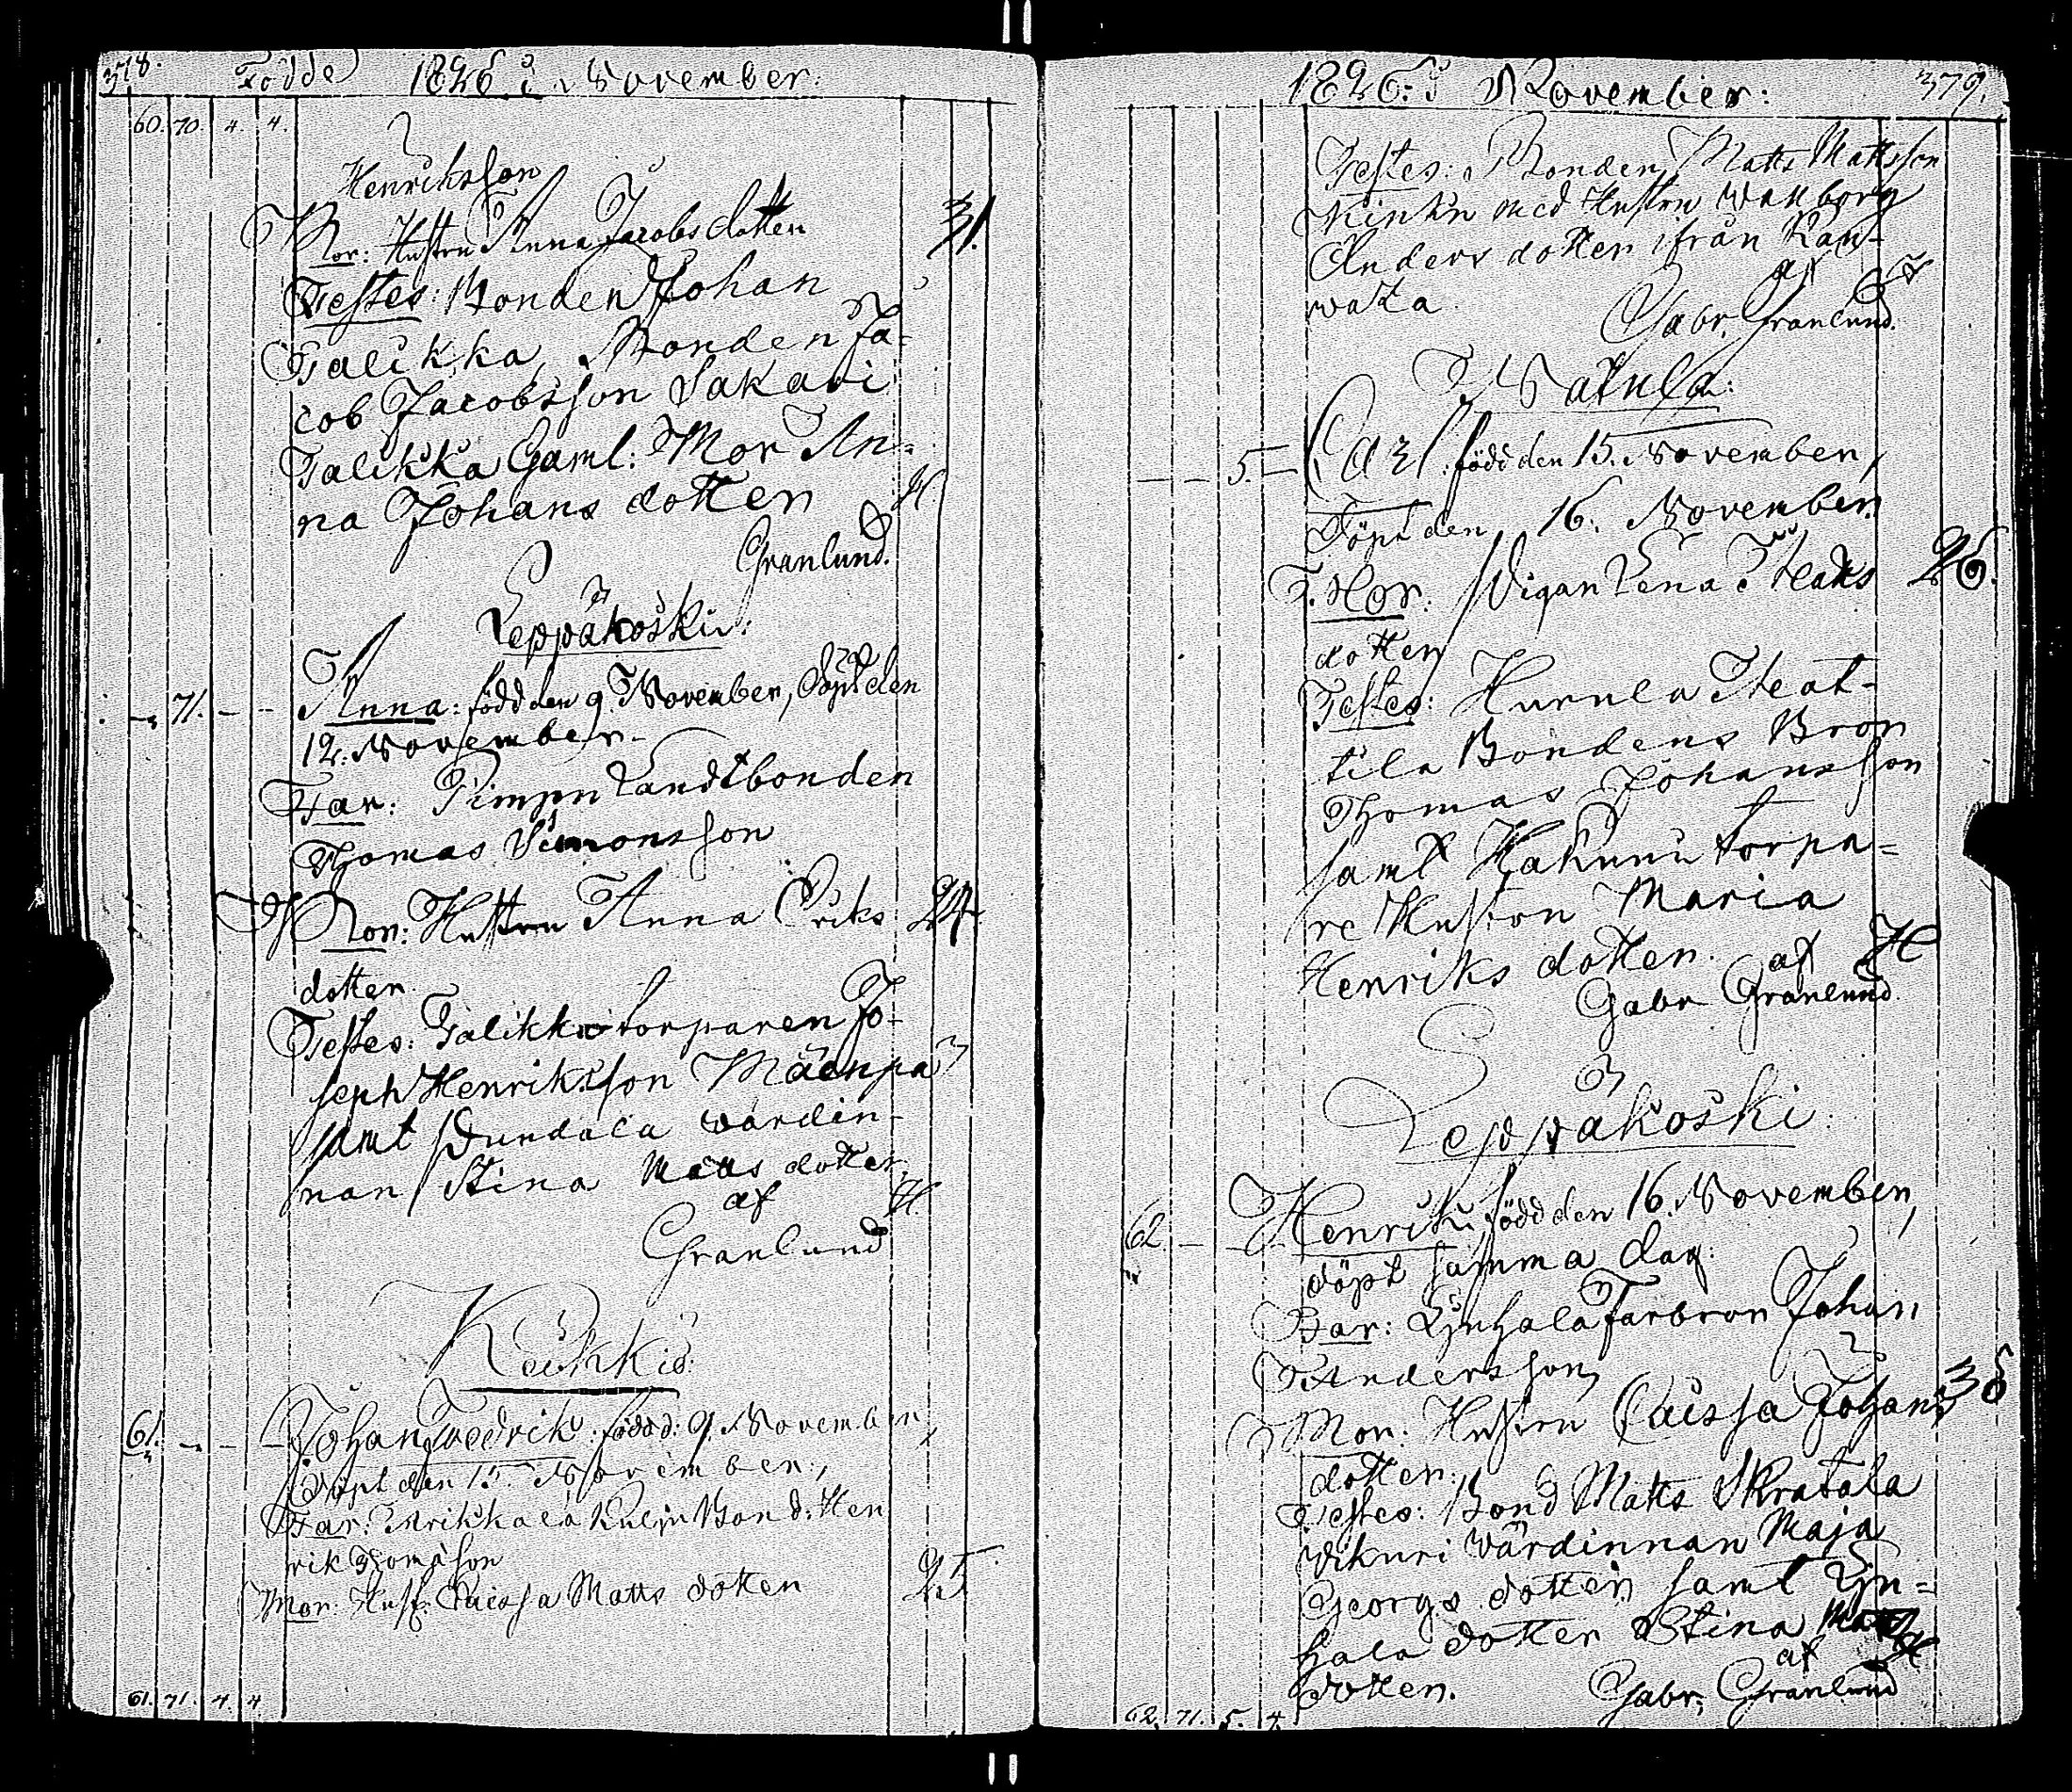 378.
Födde 1826 i November:
60. 70. 4. 4.
Henriksson
Mor: Hustru Anna Jacobs dotter 31.
Testes: Bonden Johan
Talikka, Bonden Ja-
cob Jacobsson Sakari
Talikka Gaml: Mor An-
na Johans dotter H.
Granlund.
Leppäkoski:
71. Anna: född den 9. November, Döpt den
12. November.
Far: Pimpu Landtbonden
Thomas Simonsson
Mor: Hustru Anna Eriks 24.
dotter.
Testes: Talikka torparen Jo-
seph Henriksson Mäenpä
samt Dundala värdin-
nan Stina Matts dotter
af H.
Granlund
Keikkis:
61. Johan Fredrik: född: 9. November,
Döpt den 15 November,
Far: Kulju Bond: Hen
rik Thomasson
Mor: Hust: Caissa Matts dotter 25.
61. 71. 4. 4
1826. i November:
379.
Testes: Bonden Matts Mattsson
med Hustru Wallborg
Anders dotter ifrån Kan-
wata. af H
Gabr. Granlund.
Watula:
5. Carl: född den 15. November,
Döpt den 16. November.
F. Mor: Pigan Lena Heaks 26.
dotter
Testes: Hurula Heat-
tila Bondens Bror
Thomas Johansson
samt Hakuni torpa=
re Hustrun Maria
Henriks dotter. af H
Gabr Granlund.
Leppäkoski:
62. Henrik: född den 16. November,
döpt samma dag:
Far: Lyuhala Farbron Johan
Andersson,
Mor: Hustru Caissa Johans 38
dotter:,
Testes: Bond Matts Skratala
Wikuri Värdinnan Maja
Georgs dotter, samt Lyu=
hala dotter Stina Matts
dotter. af H
Gabr: Granlund
62. 71. 5. 4.